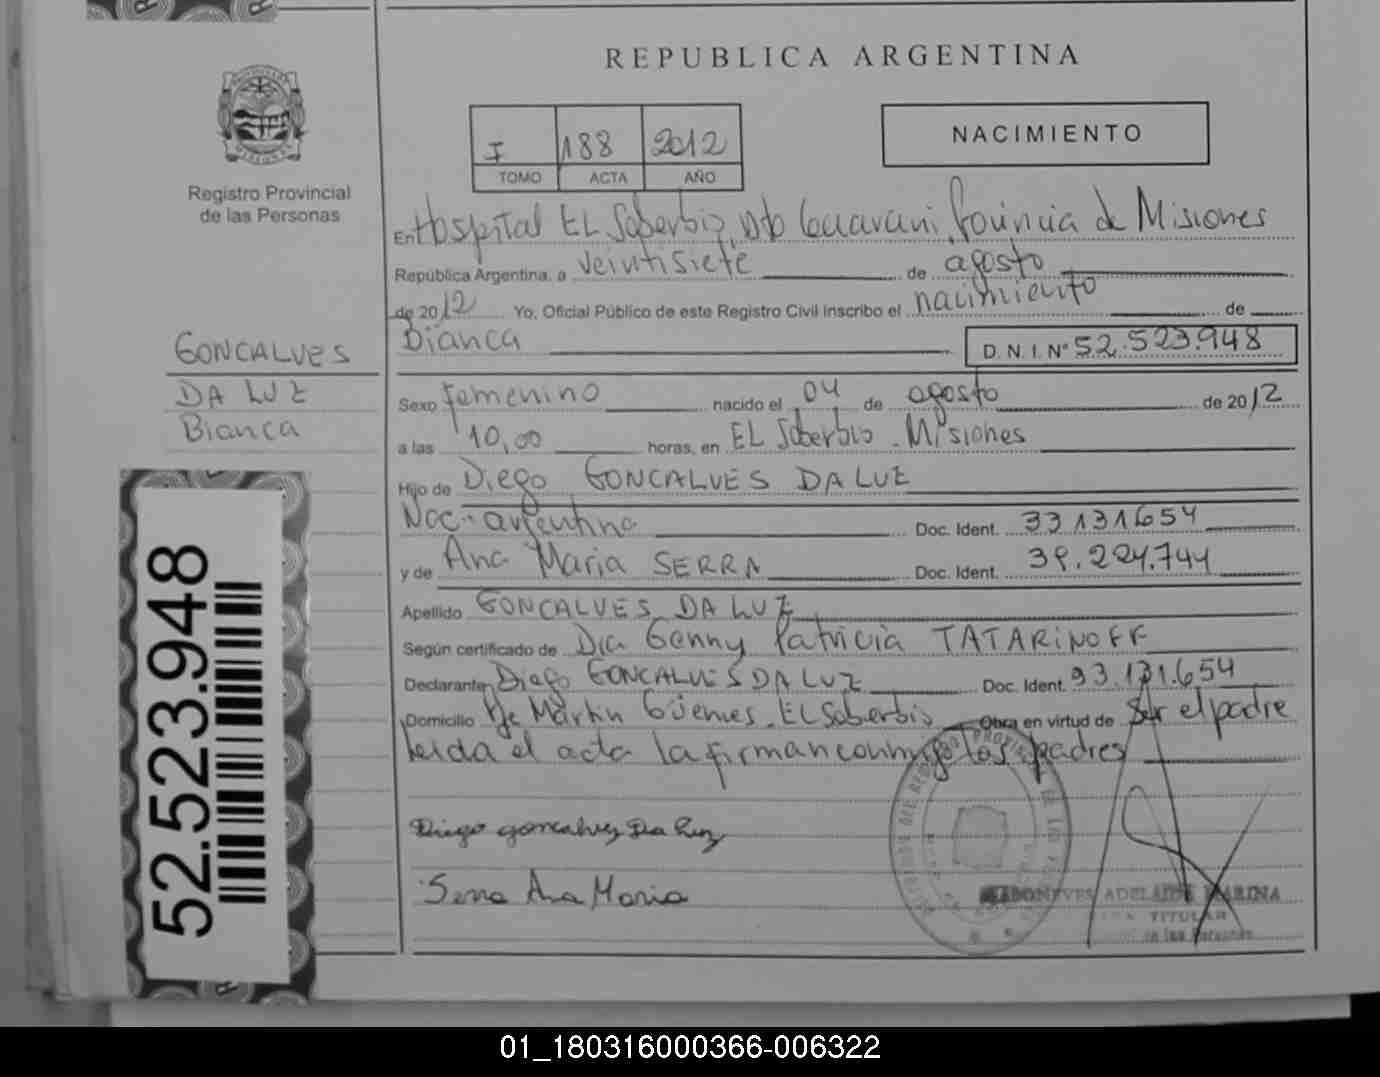 REPUBLICA ARGENTINA
Registro Provincial
de las Personas
I 188 2012
TOMO ACTA AÑO
NACIMIENTO
En Hospital EL Soberbio, Dto Guaraní, Provincia de Misiones
República Argentina, a veintisiete de agosto
de 2012 Yo, Oficial Público de este Registro Civil inscribo el nacimiento de
Bianca D.N.I. Nº 52.523.948
GONCALVES
DA LUZ
Bianca
Sexo femenino nacido el 04 de agosto de 2012
a las 10,00 horas, en EL Soberbio - Misiones
Hijo de Diego GONCALVES DA LUZ
Nac. argentina Doc. Ident. 33131654
y de Ana Maria SERRA Doc. Ident. 39.224.744
Apellido GONCALVES DA LUZ
Según certificado de Dra Genny Patricia TATARINOFF
Declarante Diego GONCALVES DA LUZ Doc. Ident. 33.131.654
Domicilio Me Martin Güemes - EL Soberbio Obra en virtud de Ser el padre
Leida el acta la firman conmigo los padres
Diego goncalvez Da Luz
Serra Ana Maria
ADELAIDE MARINA
TITULAR
de las Personas
52.523.948
01_180316000366-006322